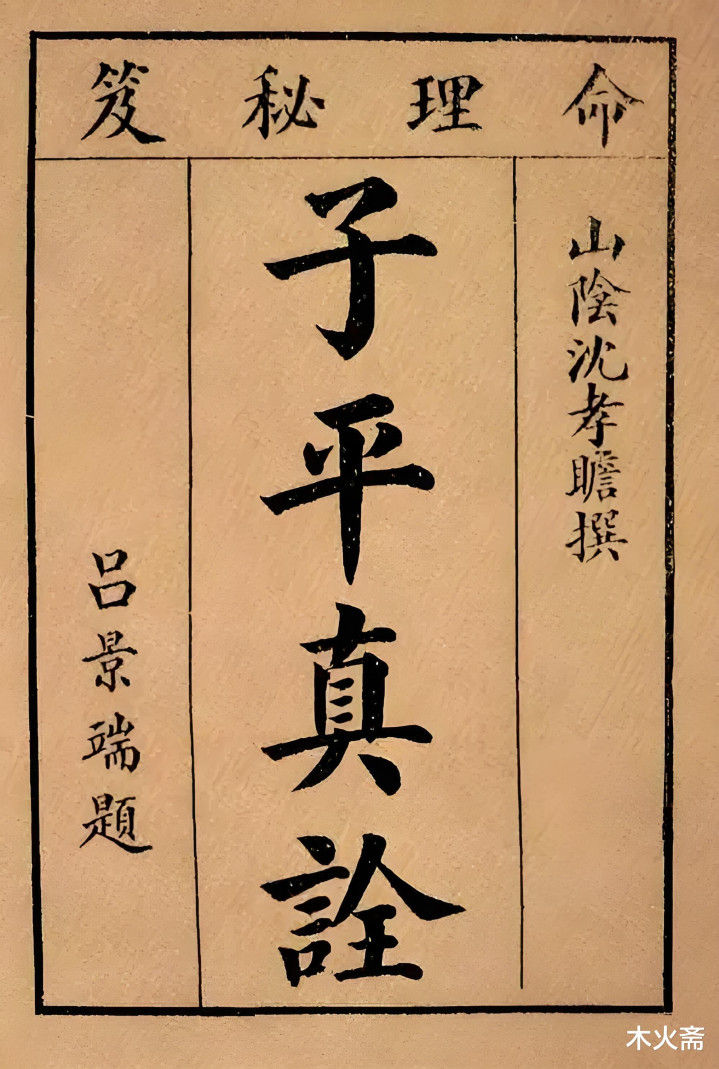 命理秘笈
山陰沈孝瞻撰
子平真詮
呂景端題
木火斋